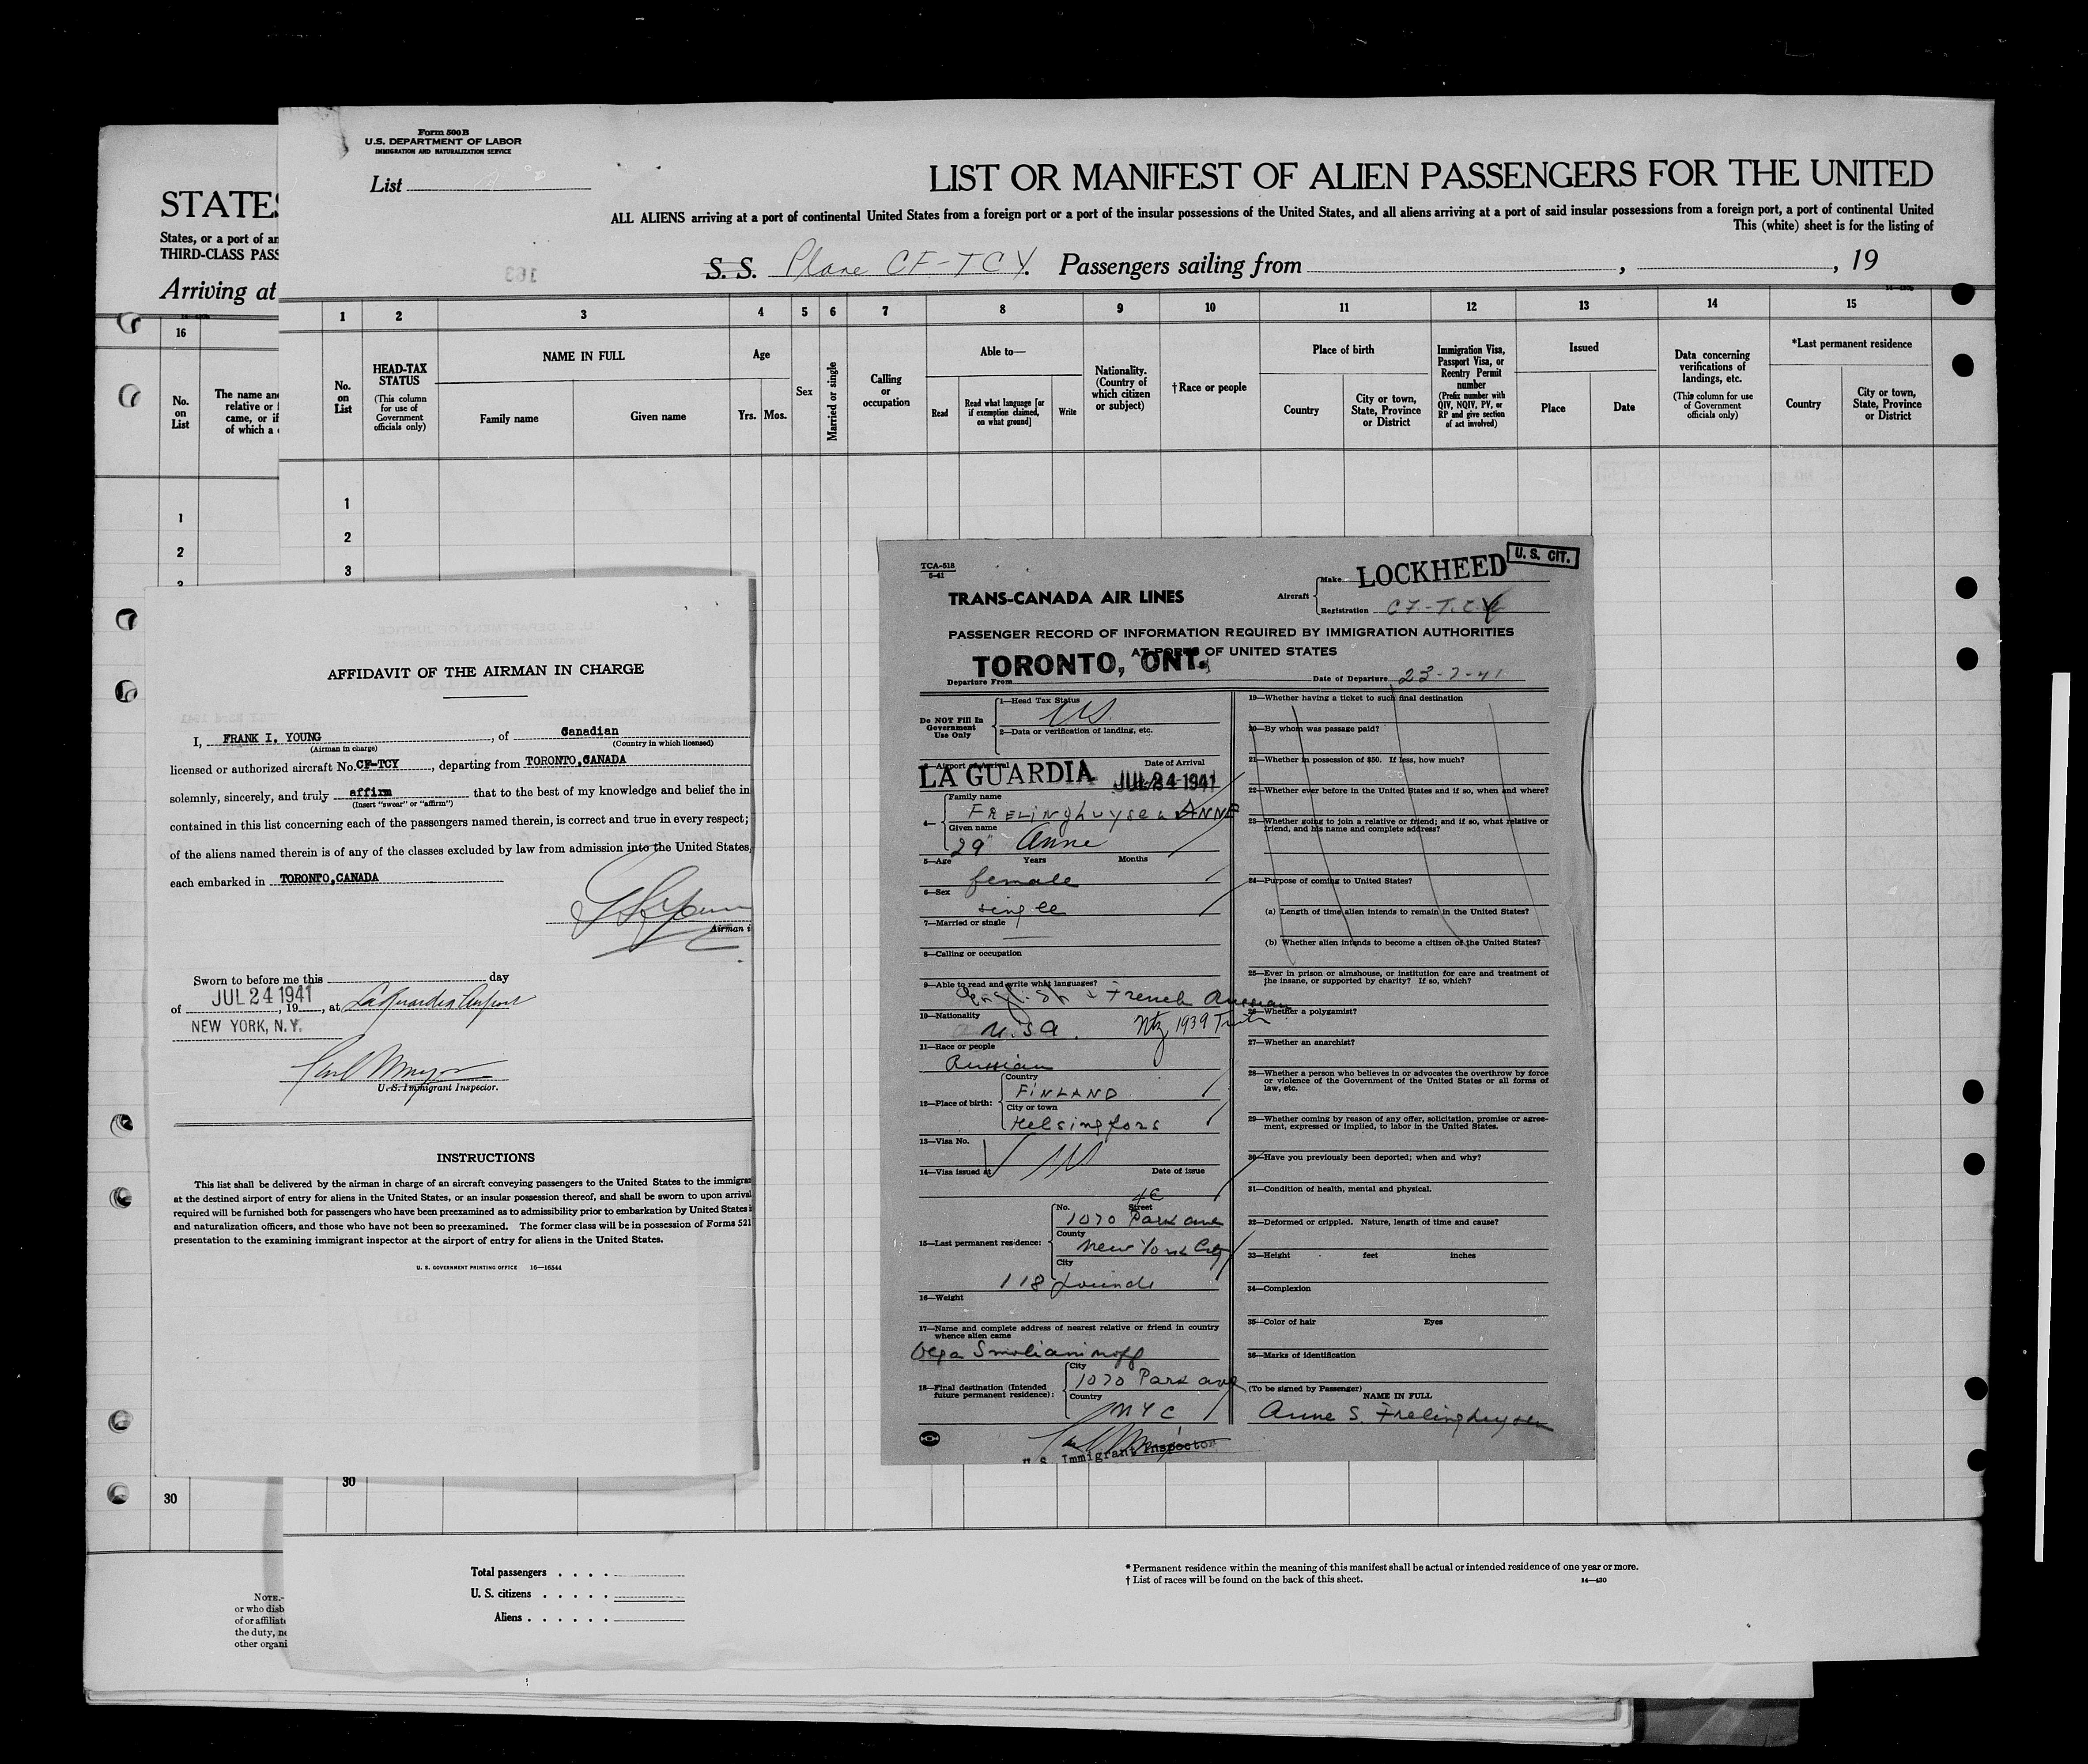 Form 500 B
U.S. DEPARTMENT OF LABOR
IMMIGRATION AND NATURALIZATION SERVICE
List
LIST OR MANIFEST OF ALIEN PASSENGERS FOR THE UNITED
ALL ALIENS arriving at a port of continental United States from a foreign port or a port of the insular possessions of the United States, and all aliens arriving at a port of said insular possessions from a foreign port, a port of continental United
This (white) sheet is for the listing of
S. S. Plane CF-TCY. Passengers sailing from , , 19
163
STATES
States, or a port of an
THIRD-CLASS PASS
Arriving at
16
No. on List
The name and
relative or f
came, or if
of which a c
1
2
3
30
NOTE.-
or who disb
of or affiliate
the duty, ne
other organi
1 2 3 4 5 6 7 8 9 10 11 12 13 14 15
No. on List
HEAD-TAX STATUS
(This column for use of Government officials only)
NAME IN FULL
Family name Given name
Age
Yrs. Mos.
Sex
Married or single
Calling or occupation
Able to—
Read
Read what language [or if exemption claimed, on what ground]
Write
Nationality. (Country of which citizen or subject)
†Race or people
Place of birth
Country
City or town, State, Province or District
Immigration Visa, Passport Visa, or Reentry Permit number
(Prefix number with QIV, NQIV, PV, or RP and give section of act involved)
Issued
Place Date
Data concerning verifications of landings, etc.
(This column for use of Government officials only)
*Last permanent residence
Country
City or town, State, Province or District
1
2
3
30
Total passengers . . . .
U. S. citizens . . . . .
Aliens . . . . . .
* Permanent residence within the meaning of this manifest shall be actual or intended residence of one year or more.
† List of races will be found on the back of this sheet.
14—430
AFFIDAVIT OF THE AIRMAN IN CHARGE
I, FRANK I. YOUNG , of Canadian
(Airman in charge) (Country in which licensed)
licensed or authorized aircraft No. CF-TCY , departing from TORONTO,CANADA
solemnly, sincerely, and truly affirm that to the best of my knowledge and belief the in
(Insert "swear" or "affirm")
contained in this list concerning each of the passengers named therein, is correct and true in every respect;
of the aliens named therein is of any of the classes excluded by law from admission into the United States,
each embarked in TORONTO,CANADA
Airman i
Sworn to before me this day
of JUL 24 1941 , 19 , at LaGuardia Airport
NEW YORK, N.Y.
U.S. Immigrant Inspector.
INSTRUCTIONS
This list shall be delivered by the airman in charge of an aircraft conveying passengers to the United States to the immigra
at the destined airport of entry for aliens in the United States, or an insular possession thereof, and shall be sworn to upon arrival
required will be furnished both for passengers who have been preexamined as to admissibility prior to embarkation by United States i
and naturalization officers, and those who have not been so preexamined. The former class will be in possession of Forms 521
presentation to the examining immigrant inspector at the airport of entry for aliens in the United States.
U. S. GOVERNMENT PRINTING OFFICE 16—16544
TCA-518
5-41
TRANS-CANADA AIR LINES
Aircraft
Make LOCKHEED
U. S. CIT.
Registration CF-TCY
PASSENGER RECORD OF INFORMATION REQUIRED BY IMMIGRATION AUTHORITIES
AT PORTS OF UNITED STATES
TORONTO, ONT.
Departure From Date of Departure 23-7-41
Do NOT Fill In
Government
Use Only
1—Head Tax Status US
2—Data or verification of landing, etc.
3—Airport of Arrival Date of Arrival
LA GUARDIA JUL 24 1941
4—
Family name
FRELINGhuysen ANNE
Given name
Anne
29
5—Age Years Months
female
6—Sex
single
7—Married or single
8—Calling or occupation
9—Able to read and write what languages?
English & French Russian
10—Nationality
U.S.A. Ntz 1939
11—Race or people
Russian
12—Place of birth:
Country
FINLAND
City or town
Helsingfors
13—Visa No.
US
14—Visa issued at Date of issue
4E
15—Last permanent residence:
No. Street
1070 Park ave
County
New York City
City
118 pounds
16—Weight
17—Name and complete address of nearest relative or friend in country
whence alien came
Olga Smolianinoff
18—Final destination (Intended
future permanent residence):
City
1070 Park ave
Country
NYC
U. S. Immigrant Inspector
19—Whether having a ticket to such final destination
20—By whom was passage paid?
21—Whether in possession of $50. If less, how much?
22—Whether ever before in the United States and if so, when and where?
23—Whether going to join a relative or friend; and if so, what relative or
friend, and his name and complete address?
24—Purpose of coming to United States?
(a) Length of time alien intends to remain in the United States?
(b) Whether alien intends to become a citizen of the United States?
25—Ever in prison or almshouse, or institution for care and treatment of
the insane, or supported by charity? If so, which?
26—Whether a polygamist?
27—Whether an anarchist?
28—Whether a person who believes in or advocates the overthrow by force
or violence of the Government of the United States or all forms of
law, etc.
29—Whether coming by reason of any offer, solicitation, promise or agree-
ment, expressed or implied, to labor in the United States.
30—Have you previously been deported; when and why?
31—Condition of health, mental and physical.
32—Deformed or crippled. Nature, length of time and cause?
33—Height feet inches
34—Complexion
35—Color of hair Eyes
36—Marks of identification
(To be signed by Passenger)
NAME IN FULL
Anne S. Frelinghuysen